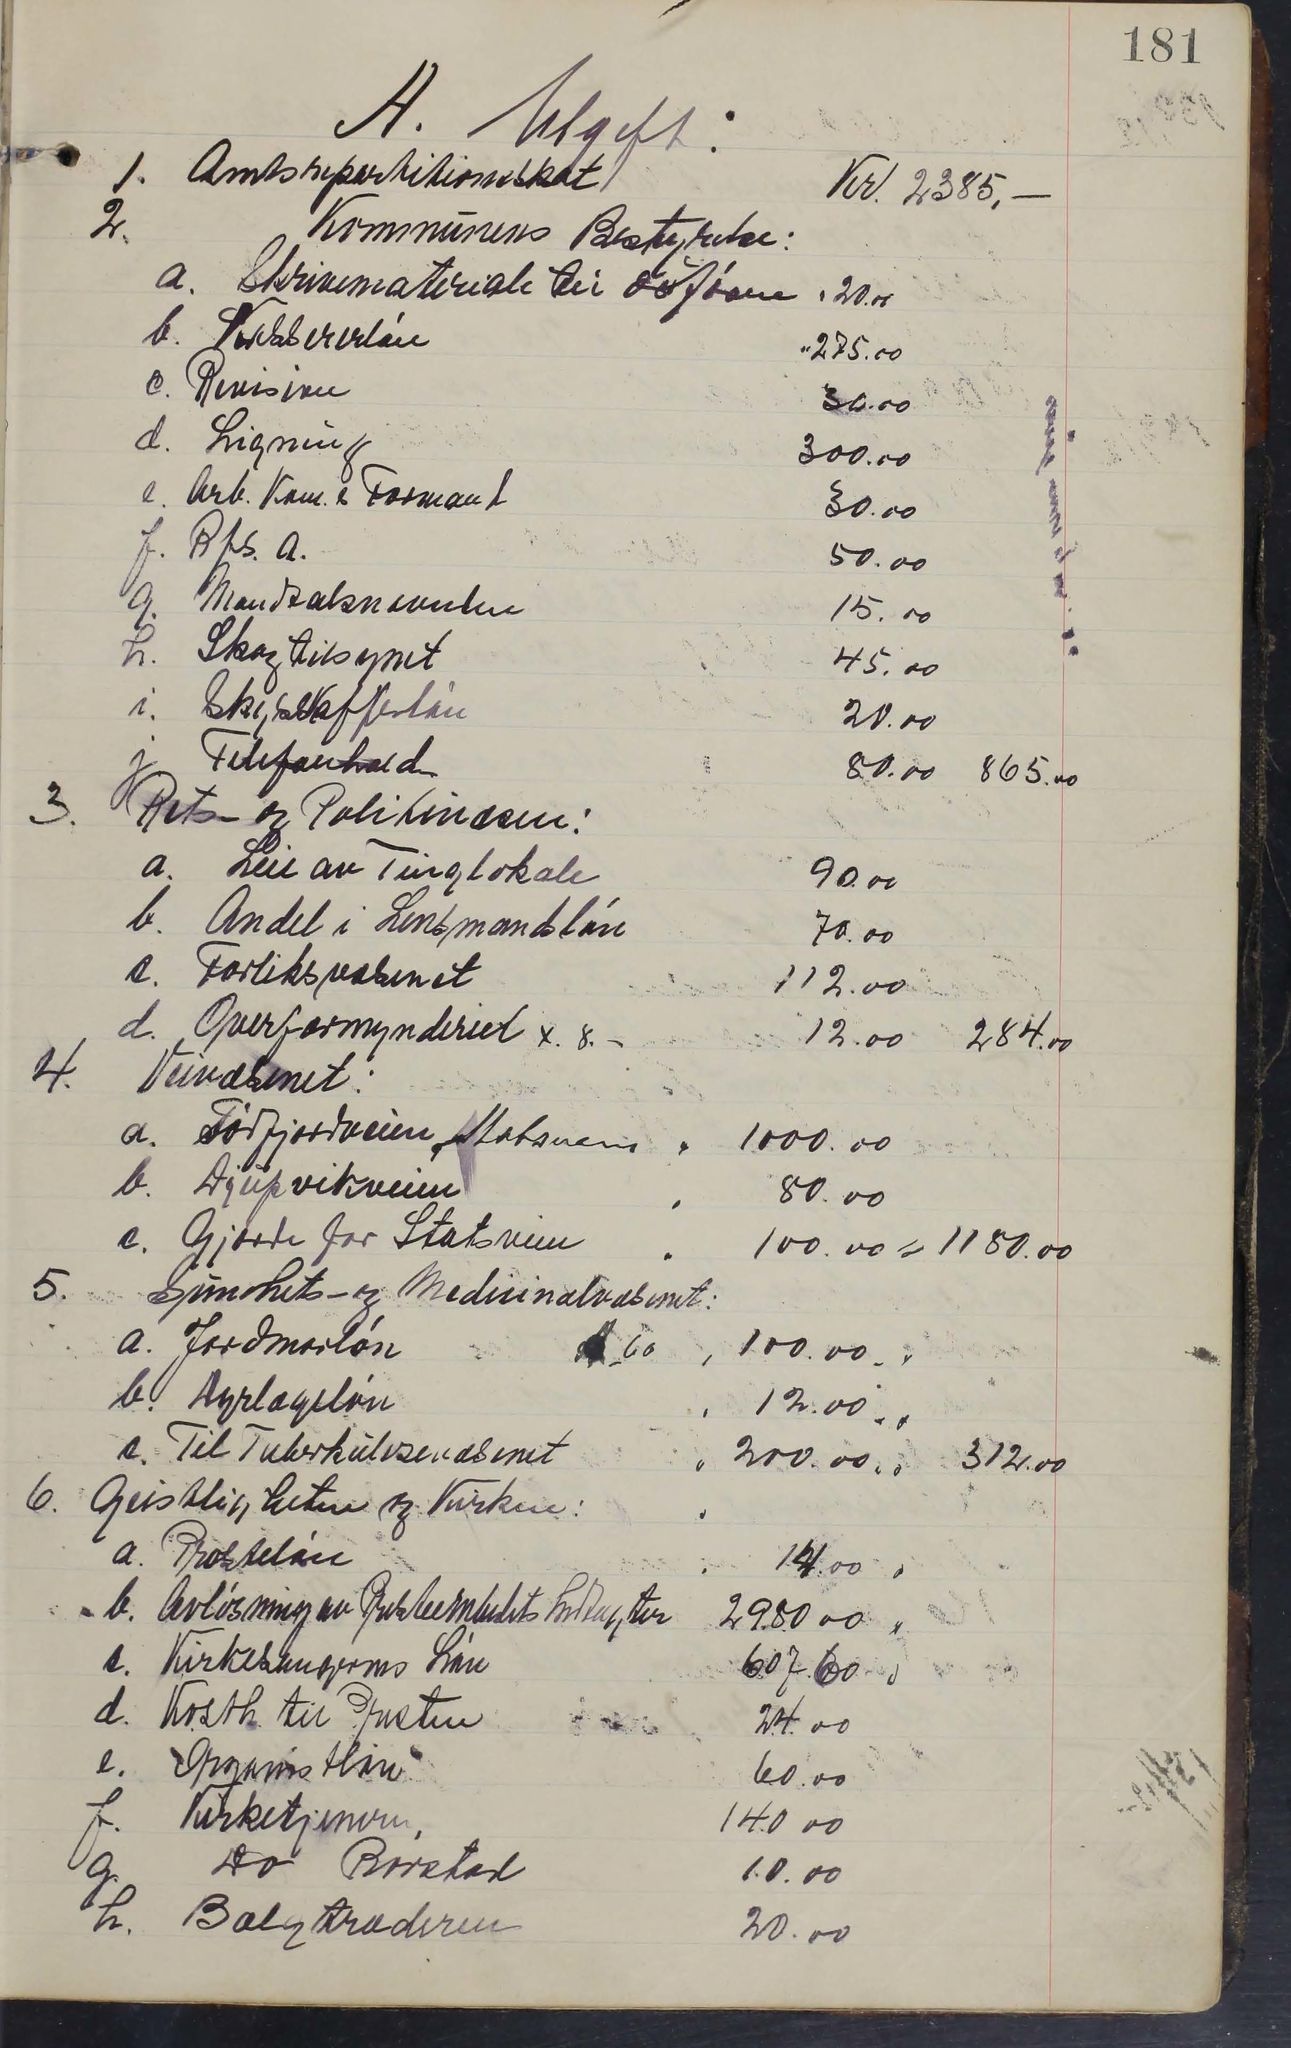 181
A. Utgift:
1. Amtsrepartitionsskat Kr. 2385,—
2. Kommunens Bestyrelse:
a. Skrivemateriale til 20.00
b. Kassererløn " 275.00
c. Revision 30.00
d. Ligning 300.00
e. Arb. Kom. s Formand 30.00
f. 50.00
g. Mandtalsnevnden 15.00
h. Skogtilsynet 45.00
i. Skysskafferløn 20.00
j. Telefonhold 80.00 865.00
3. Rets- og Politivæsen:
a. Leie av Tinglokale 90.00
b. Andel i Lensmandsløn 70.00
c. Forliksvæsenet 112.00
d. Overformynderiet x. 8.- 12.00 284.00
4. Veivæsenet:
a. Statsveien " 1000.00
b. Djupvikveien " 80.00
c. Gjærde for Statsveien " 100.00 = 1180.00
5. Sundhets- og Medicinalvæsenet:
a. Jordmorløn 60 " 100.00 "
b. Dyrlægeløn " 12.00 "
c. Til Tuberkulosevæsenet " 200.00 " 312.00
6. Geistligheten og Kirken: "
a. Prosteløn " 14.00 "
b. Avløsning av Presteembedets Indtægter 2980 00 "
c. Kirkesangerens Løn 607.60 "
d. Kosth. til Presten 24.00
e. Organistløn 60.00
f. Kirketjeneren, 140 00
g. Do Borstad 10.00
h. Bælgtræderen 20.00